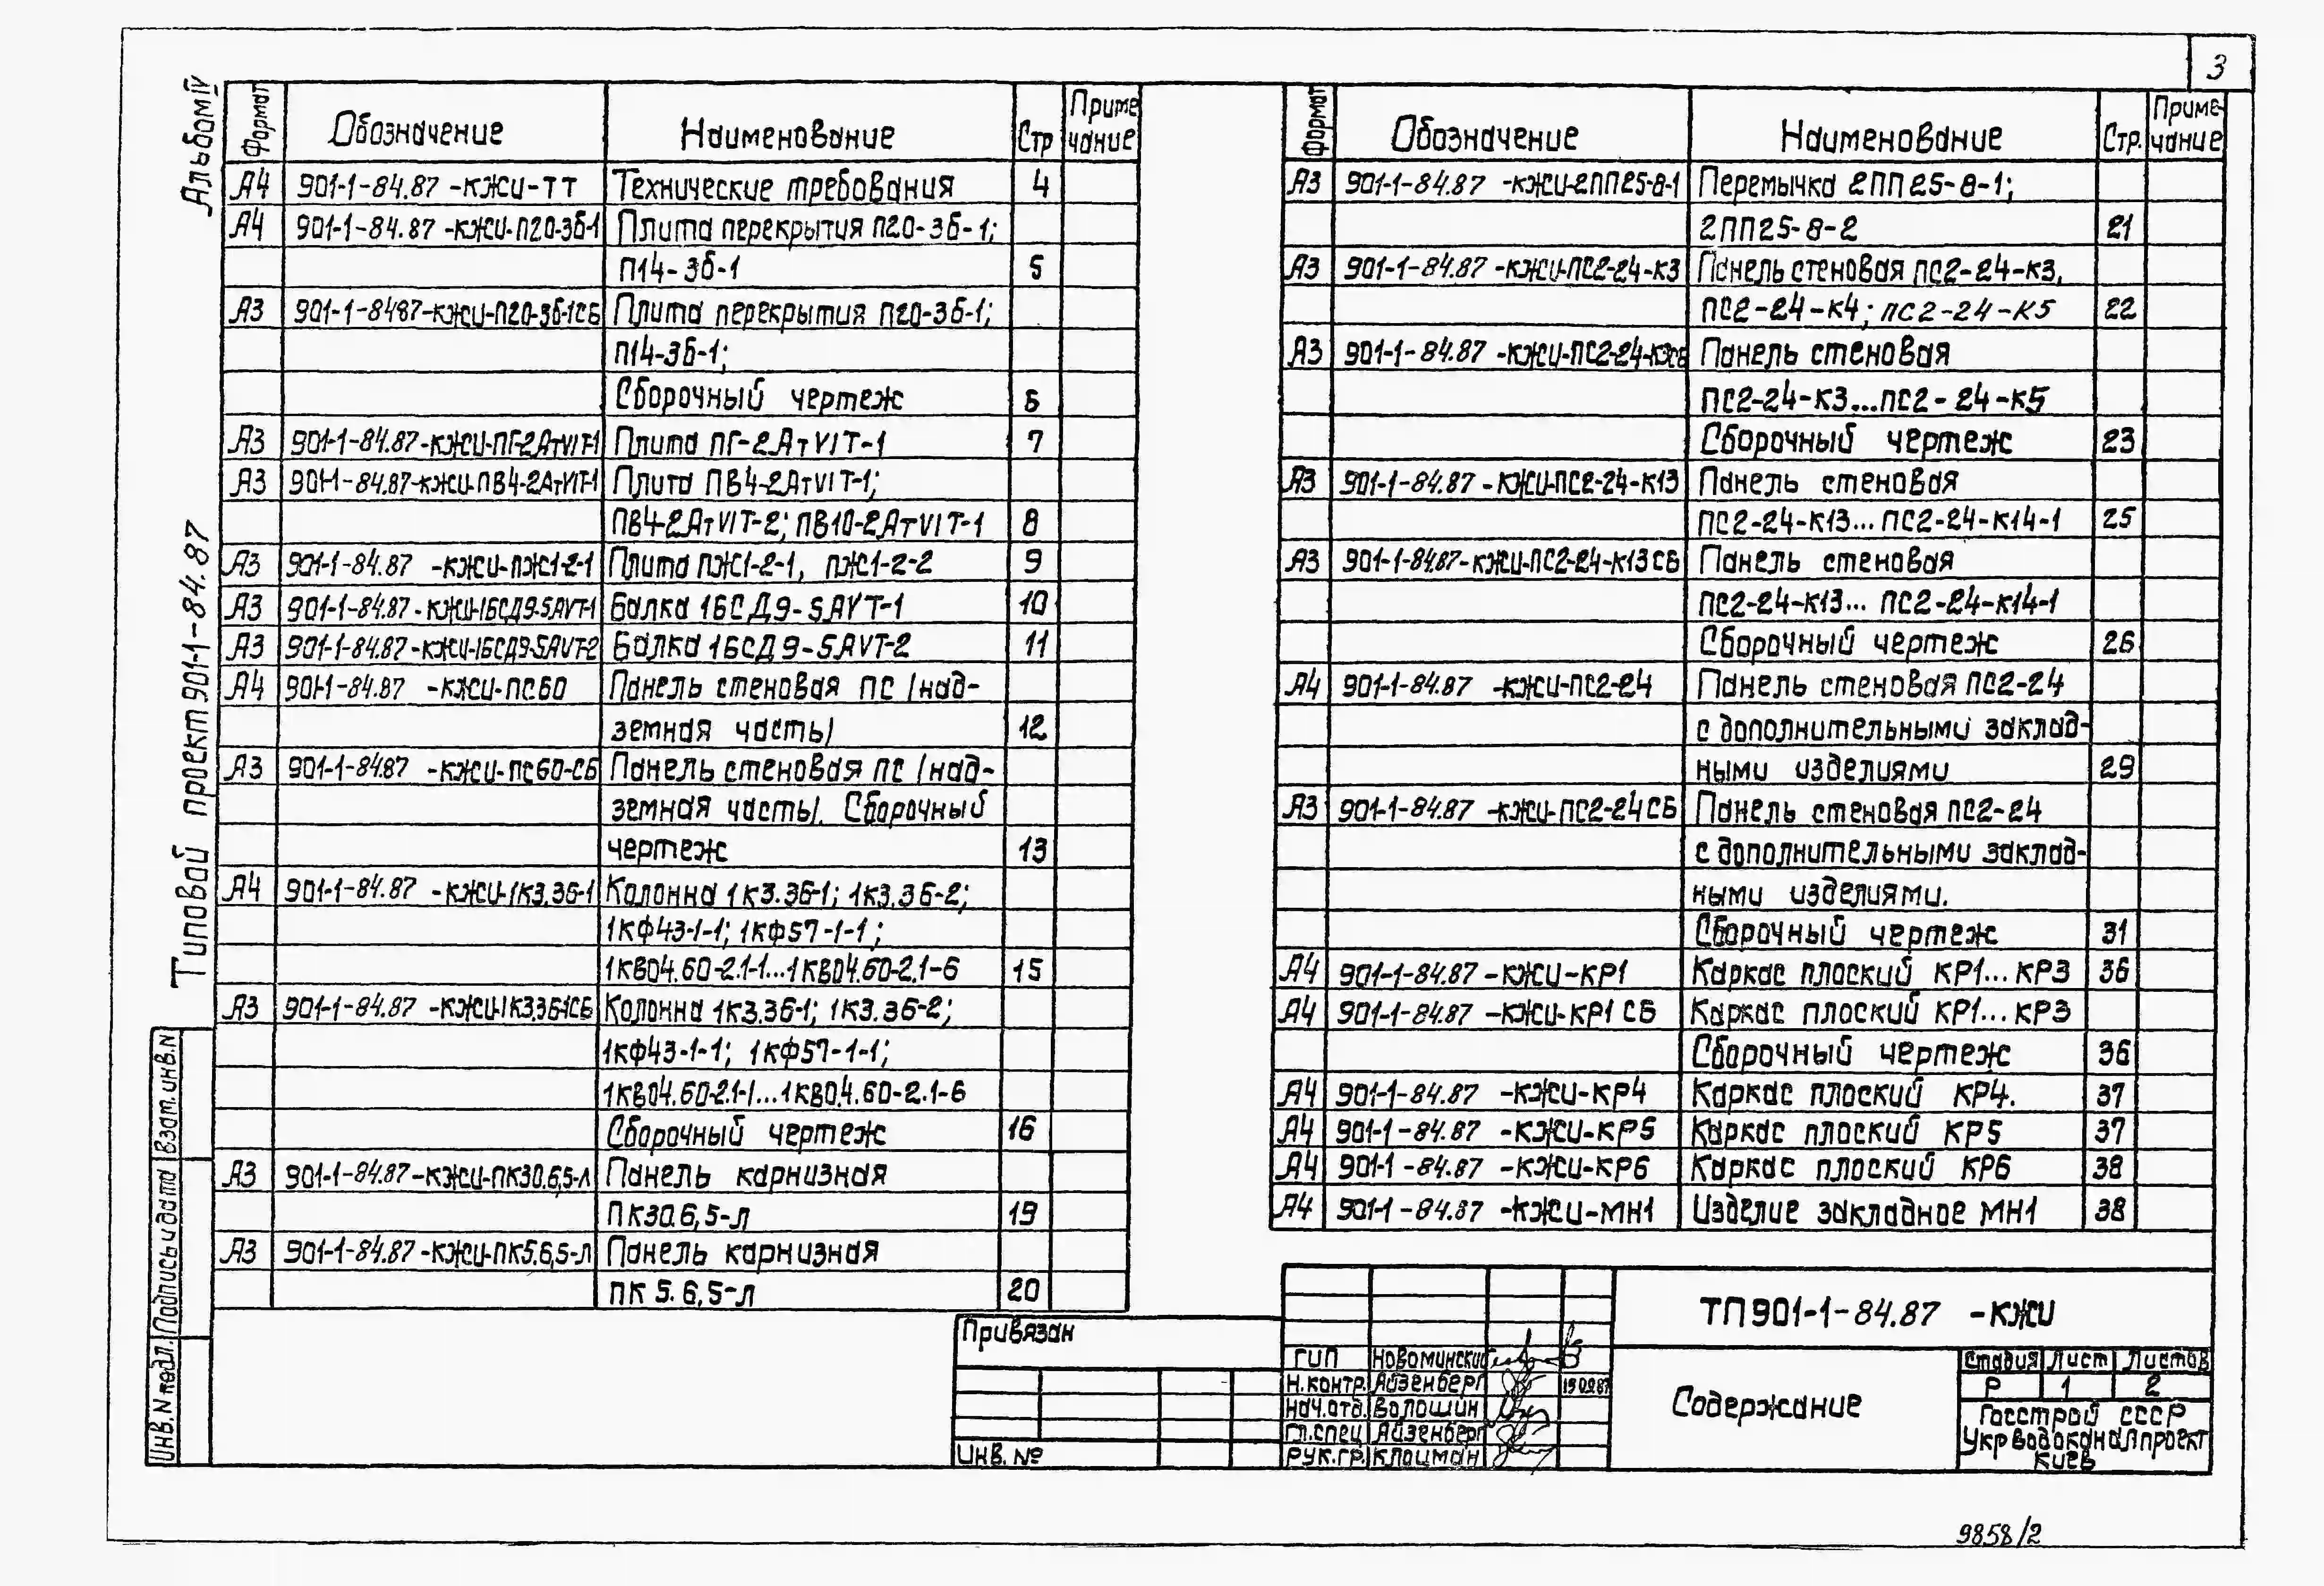 3
Альбом IV
Типовой проект 901-1-84.87
Формат Обозначение Наименование Стр Приме чание
А4 901-1-84.87 -КЖИ-ТТ Технические требования 4
А4 901-1-84.87 -КЖИ-П20-3б-1 Плита перекрытия П20-3б-1;
П14-3б-1 5
А3 901-1-8487-КЖИ-П20-3б-1СБ Плита перекрытия П20-3б-1;
П14-3б-1;
Сборочный чертеж 6
А3 901-1-84.87-КЖИ-ПГ-2АтVIТ-1 Плита ПГ-2АтVIТ-1 7
А3 901-1-84.87-КЖИ-ПВ4-2АтVIТ-1 Плита ПВ4-2АтVIТ-1;
ПВ4-2АтVIТ-2; ПВ10-2АтVIТ-1 8
А3 901-1-84.87 -КЖИ-ПЖ1-2-1 Плита ПЖ1-2-1, ПЖ1-2-2 9
А3 901-1-84.87 -КЖИ-1БСД9-5АVТ-1 Балка 1БСД9-5АVТ-1 10
А3 901-1-84.87 -КЖИ-1БСД9-5АVТ-2 Балка 1БСД9-5АVТ-2 11
А4 901-1-84.87 -КЖИ-ПС60 Панель стеновая ПС /над-
земная часть/ 12
А3 901-1-84.87 -КЖИ-ПС60-СБ Панель стеновая ПС /над-
земная часть/. Сборочный
чертеж 13
А4 901-1-84.87 -КЖИ-1К3.36-1 Колонна 1К3.36-1; 1К3.36-2;
1КФ43-1-1; 1КФ57-1-1;
1КВ04.60-2.1-1...1КВ04.60-2.1-6 15
А3 901-1-84.87 -КЖИ-1К3.36-1СБ Колонна 1К3.36-1; 1К3.36-2;
1КФ43-1-1; 1КФ57-1-1;
1КВ04.60-2.1-1...1КВ04.60-2.1-6
Сборочный чертеж 16
А3 901-1-84.87-КЖИ-ПК30.6,5-Л Панель карнизная
ПК30.6,5-Л 19
А3 901-1-84.87-КЖИ-ПК5.6,5-Л Панель карнизная
ПК 5.6,5-Л 20
Формат Обозначение Наименование Стр. Приме-чание
А3 901-1-84.87 -КЖИ-2ПП25-8-1 Перемычка 2ПП25-8-1;
2ПП25-8-2 21
А3 901-1-84.87 -КЖИ-ПС2-24-К3 Панель стеновая ПС2-24-К3,
ПС2-24-К4; ПС2-24-К5 22
А3 901-1-84.87 -КЖИ-ПС2-24-К3СБ Панель стеновая
ПС2-24-К3...ПС2-24-К5
Сборочный чертеж 23
А3 901-1-84.87 -КЖИ-ПС2-24-К13 Панель стеновая
ПС2-24-К13... ПС2-24-К14-1 25
А3 901-1-84.87-КЖИ-ПС2-24-К13СБ Панель стеновая
ПС2-24-К13... ПС2-24-К14-1
Сборочный чертеж 26
А4 901-1-84.87 -КЖИ-ПС2-24 Панель стеновая ПС2-24
с дополнительными заклад-
ными изделиями 29
А3 901-1-84.87 -КЖИ-ПС2-24СБ Панель стеновая ПС2-24
с дополнительными заклад-
ными изделиями.
Сборочный чертеж 31
А4 901-1-84.87 -КЖИ-КР1 Каркас плоский КР1...КР3 36
А4 901-1-84.87 -КЖИ-КР1 СБ Каркас плоский КР1...КР3
Сборочный чертеж 36
А4 901-1-84.87 -КЖИ-КР4 Каркас плоский КР4. 37
А4 901-1-84.87 -КЖИ-КР5 Каркас плоский КР5 37
А4 901-1-84.87 -КЖИ-КР6 Каркас плоский КР6 38
А4 901-1-84.87 -КЖИ-МН1 Изделие закладное МН1 38
Взат.инв.N
Подпись и дата
Инв.N подл.
Привязан
Инв. №
ТП 901-1-84.87 -КЖИ
ГИП Новоминский
Н.контр. Айзенберг 15.02.87
Нач.отд. Волошин
Гл.спец Айзенберг
Рук.гр. Клоцман
Содержание
Стадия Лист Листов
Р 1 2
Госстрой СССР
Укрводоканалпроект
Киев
9858/2